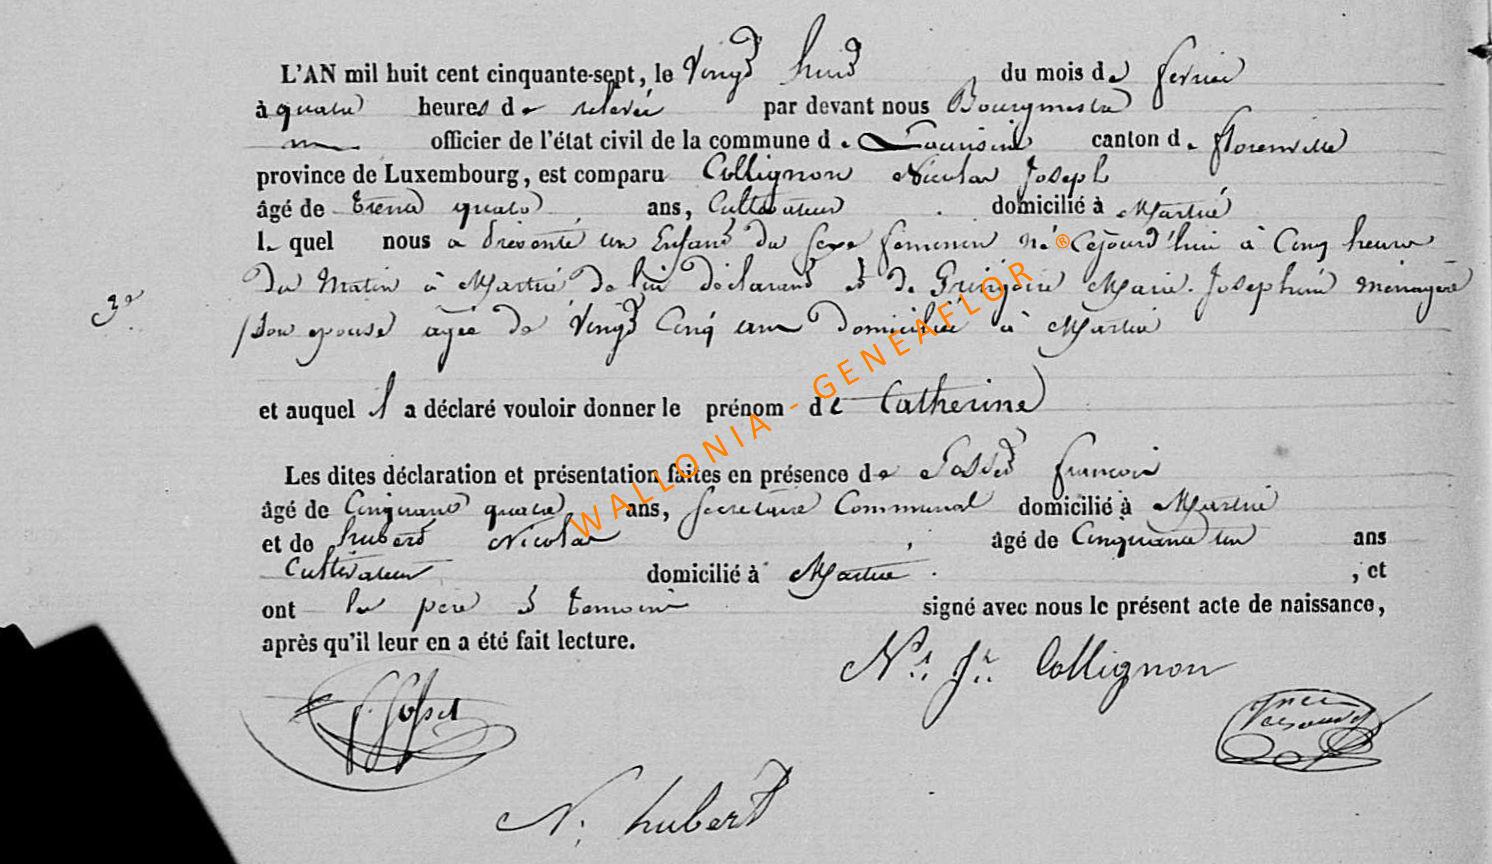 L'AN mil huit cent cinquante-sept, le Vingt huit du mois de fevrier
à quatre heures de relevée par devant nous Bourgmestre
officier de l'état civil de la commune de canton de florenville
province de Luxembourg, est comparu Collignon Nicolas Joseph
âgé de trente quatre ans, Cultivateur domicilié à Martué
lequel nous a présenté un Enfant du sexe feminin né Cejourd'hui à Cinq heures
du Matin à Martué de lui déclarant et de Gringoire Marie Josephine menagère
3e
son epouse agée de Vingt Cinq ans domiciliée à Martué
et auquel il a déclaré vouloir donner le prénom de Catherine
Les dites déclaration et présentation faites en présence de françois
âgé de Cinquante quatre ans, Secretaire Communal domicilié à Martué
et de hubert Nicolas, âgé de Cinquante un ans
Cultivateur domicilié à Martué, et
ont les pere et temoins signé avec nous le présent acte de naissance,
après qu'il leur en a été fait lecture.
Ns. Jh. Collignon
N. hubert
WALLONIA - GENEAFLOR®